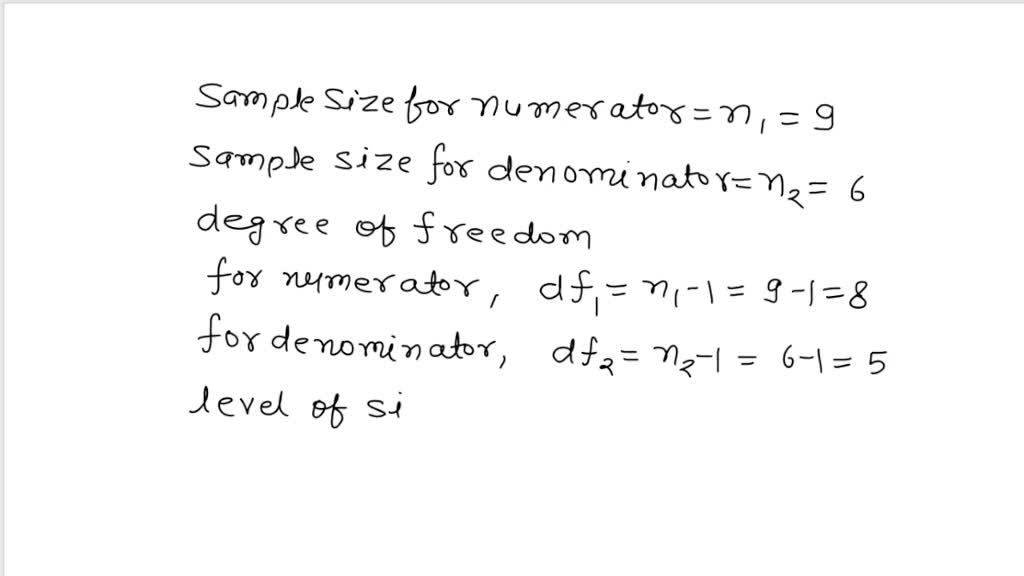 Sample size for numerator = n₁ = 9
Sample size for denominator = n₂ = 6
degree of freedom
for numerator, df₁ = n₁-1 = 9-1 = 8
for denominator, df₂ = n₂-1 = 6-1 = 5
level of si